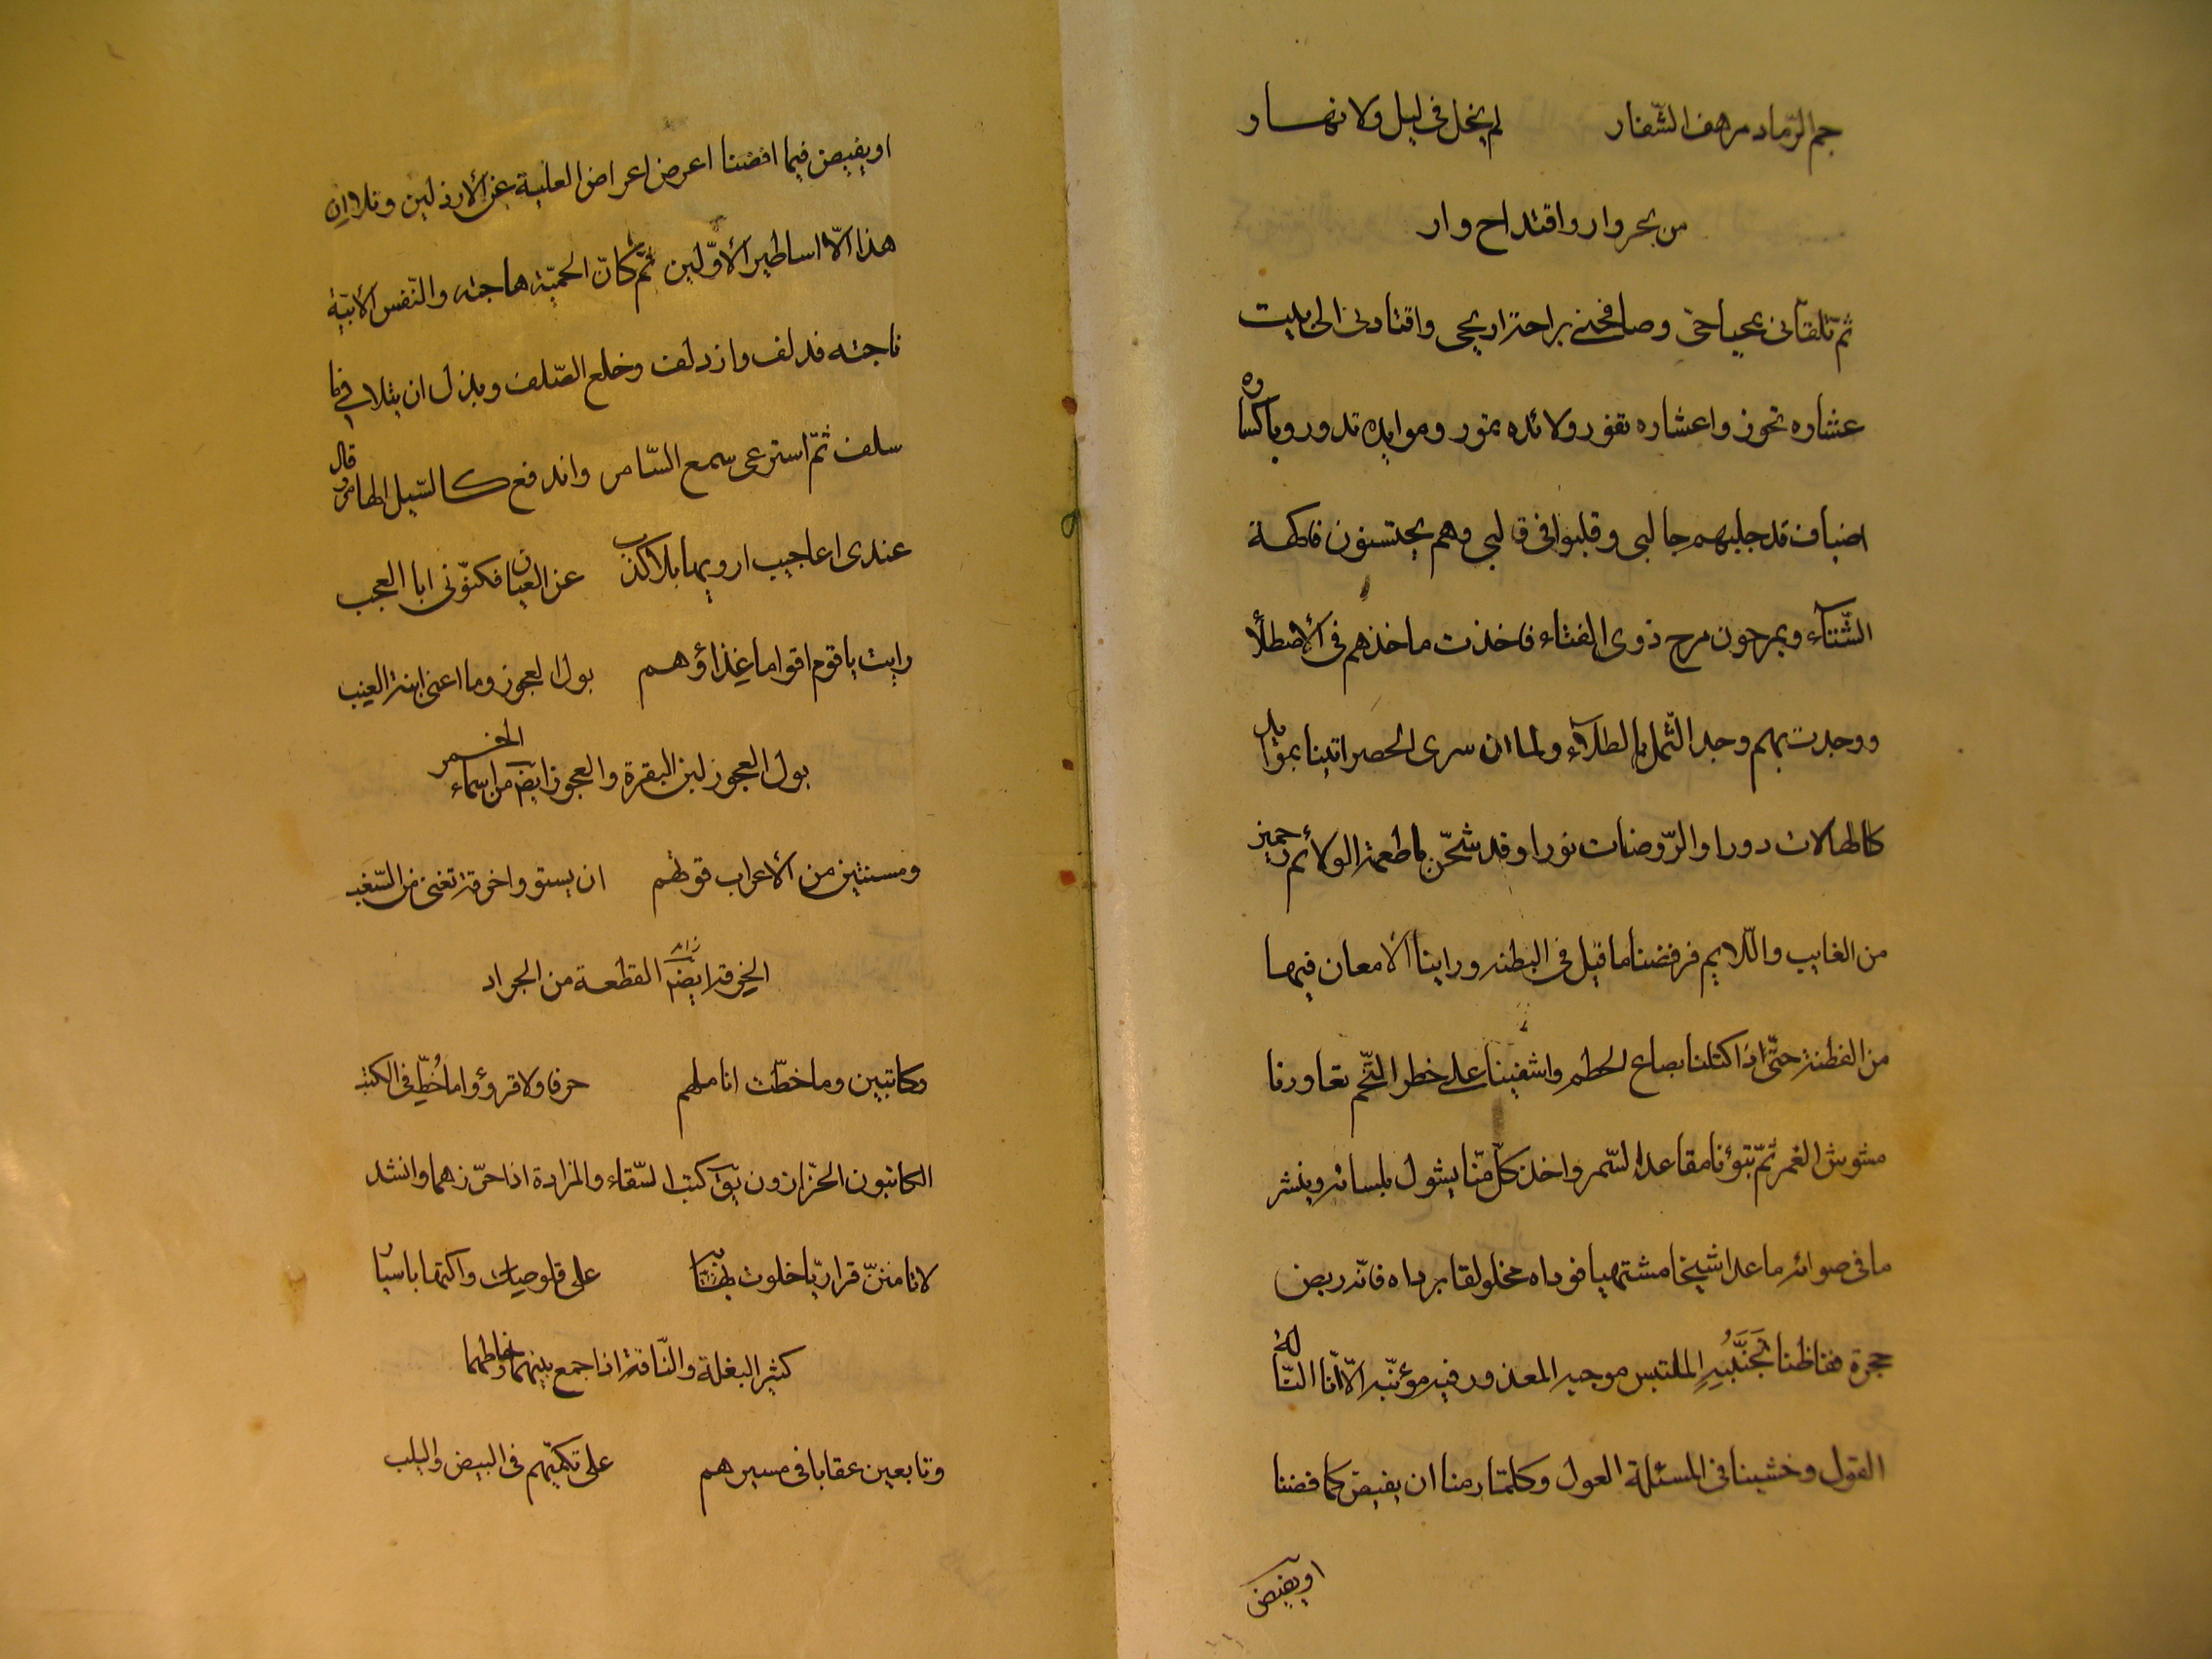 جم الرّماد مرهف الشّفار لم يخل فى ليل ولا نهار
من بحر وار واقتداح وار
ثم تلقّانى بمحيا حيّ وصافحنى براحة اريحى واقتادنى الى بيت
عشاره تخور واعشاره تفور ولائده تمور وموايده تدور وباكساره
اضياف قد جلبهم جالبى وقلبوا فى قالبى وهم يجتنون فاكهة
الشّتآء ويمرحون مرح ذوى الفتاء فاخذت ماخذهم فى الأصطلأ
ووجدت بهم وجد الثّمل بالطلآء ولما ان سرى الحصر اتينا بموايد
كالهالات دورا والرّوضات نورا وقد شحّن باطعمة الولائم وحمين
من العايب واللّايم فرفضنا ما قيل فى البطنه وراينا الأمعان فيها
من الفطنة حتّى اذا اكتلنا بصاع الحطم واشفينا على خطر التّخم تعاورنا
مشوش الغمر ثمّ تبوّئنا مقاعد السّمر واخذ كلّ منّا يشول بلسانه وينشر
ما فى صوانه ما عدا شيخا مشتهبا فوداه مخلولقا برداه فانّه ربض
حجرة فغاظنا تجنّبه الملتبس موجبه المعذور فيه مؤنّبه الّا انّا النّا له
القول وخشينا فى المسئلة العول وكلمّا رمنا ان يفيض كما فضنا
او يفيض
او يفيض فيما افضنا اعرض اعراض العلية عن الأرذلين وتلا ان
هذا الّا اساطير الأوّلين ثمّ كانّ الحميّة هاجته والنّفس الأبيّة
ناجته فدلف وازدلف وخلع الصّلف وبذل ان يتلافى ما
سلف ثمّ استرعى سمع السّامر واندفع كالسّيل الهامر وقال
عندى اعاجيب ارويها بلا كذب عن العيان فكنّونى ابا العجب
رايت يا قوم اقواما غذاؤهم بول العجوز وما اعنى ابنة العنب
بول العجوز لبن البقرة والعجوز ايضا من اسماء الخمر
ومسنتين من الأعراب قوتهم ان يستووا خرقة تغنى من السّغب
الخرقة ايضا القطعة من الجراد
وكاتبين وما خطّت اناملهم حرفا ولا قرؤوا ما خُطّ فى الكتب
الكاتبون الخرّازون يق كتب السّقاء والمزادة اذا خرزهما وانشد
لا تامننّ فزاريّا خلوت به على قلوصك واكتبها باسيار
كتب البغلة والنّاقة اذا جمع بينهما وخاطهما
وتابعين عقابا فى مسيرهم على تكمّيهم فى البيض واليلب